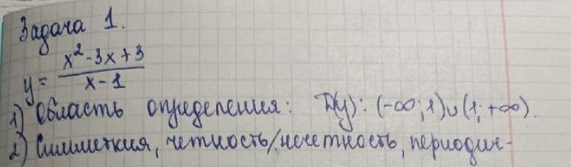 Задача 1.
y = (x² - 3x + 3) / (x - 1)
1) Область определения: D(y): (-∞; 1)∪(1; +∞).
2) Симметрия, четность/нечетность, периодич-